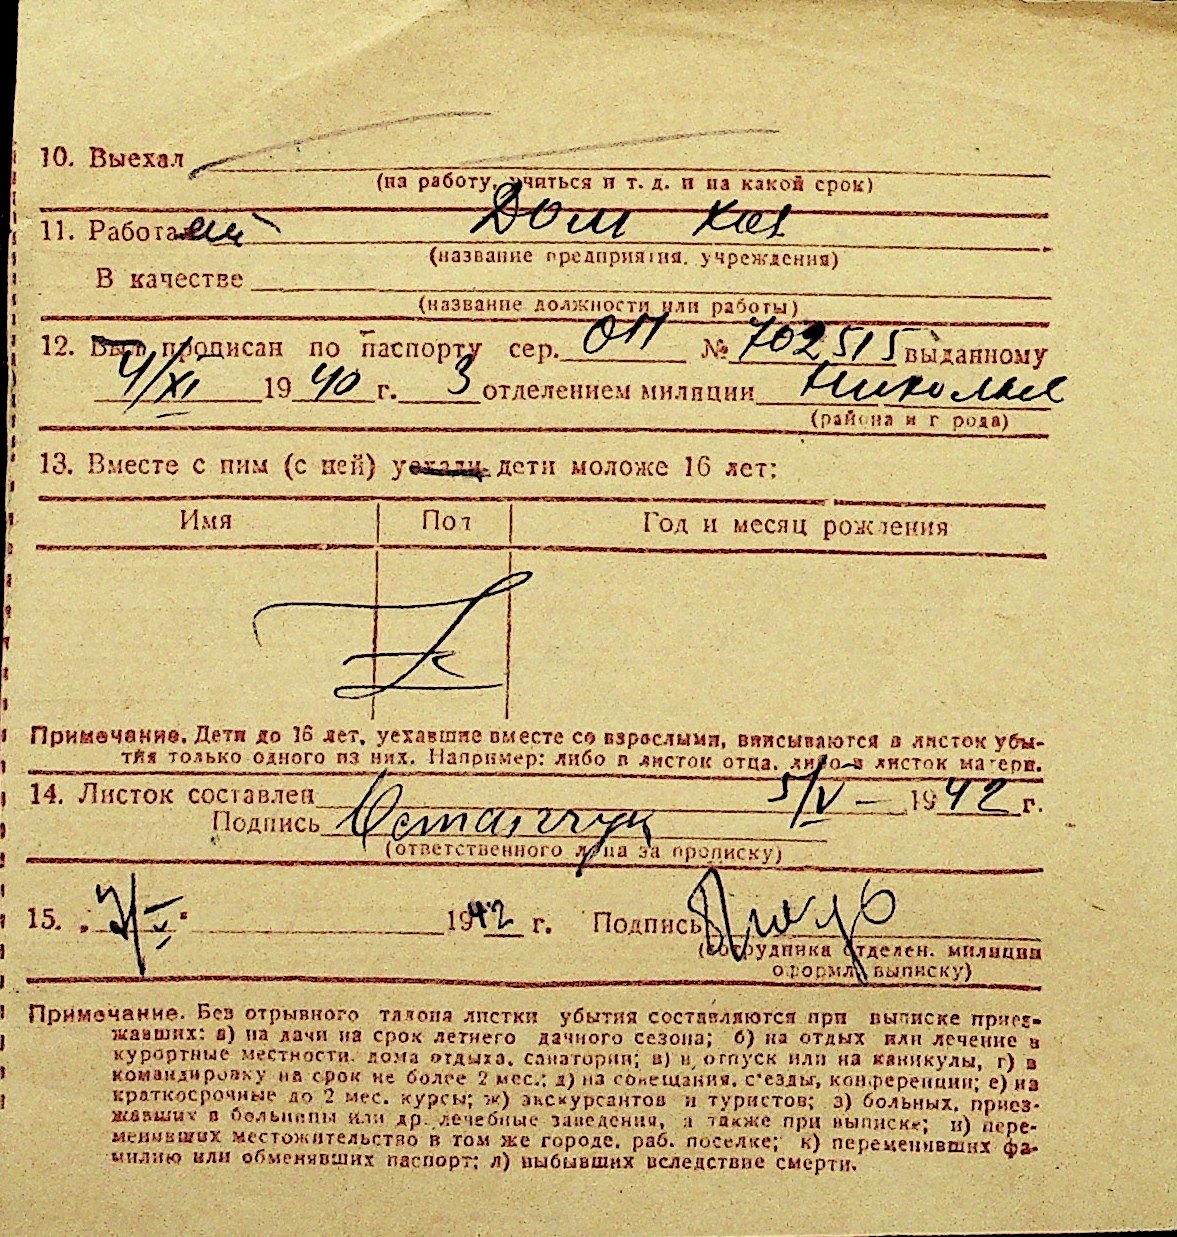 10. Выехал
(на работу, учиться и т. д. и на какой срок)
11. Работа Дом хоз
(название предприятия, учреждения)
В качестве
(название должности или работы)
12. Был прописан по паспорту сер. ОП № 702515 выданному
4/XI 1940 г. 3 отделением милиции Николаев
(района и города)
13. Вместе с ним (с ней) уехали дети моложе 16 лет:
Имя Пол Год и месяц рождения
Z
Примечание. Дети до 16 лет, уехавшие вместе со взрослыми, вписываются в листок убы-
тия только одного из них. Например: либо в листок отца, либо в листок матери.
14. Листок составлен 5/V – 1942 г.
Подпись Остапчук
(ответственного лица за прописку)
15. „7/V" 1942 г. Подпись
(сотрудника отделен. милиции
оформл. выписку)
Примечание. Без отрывного талона листки убытия составляются при выписке приез-
жавших: а) на дачи на срок летнего дачного сезона; б) на отдых или лечение в
курортные местности, дома отдыха, санатории; в) в отпуск или на каникулы, г) в
командировку на срок не более 2 мес.; д) на совещания, с'езды, конференции; е) на
краткосрочные до 2 мес. курсы; ж) экскурсантов и туристов; з) больных, приез-
жавших в больницы или др. лечебные заведения, а также при выписке; и) пере-
менивших местожительство в том же городе, раб. поселке; к) переменивших фа-
милию или обменявших паспорт; л) выбывших вследствие смерти.